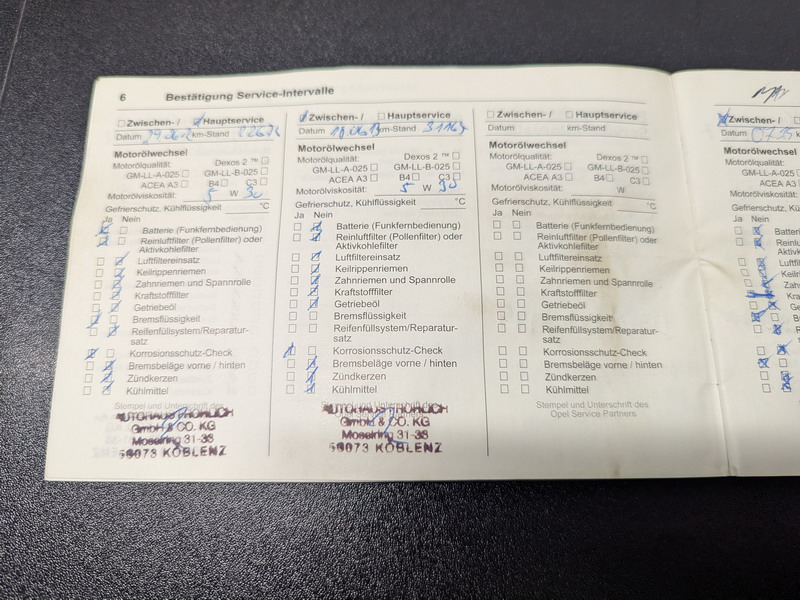 6 Bestätigung Service-Intervalle
Zwischen- / Hauptservice
Datum km-Stand
Motorölwechsel
Motorölqualität: Dexos 2 ™
GM-LL-A-025 GM-LL-B-025
ACEA A3 B4 C3
Motorölviskosität: 5 W 30
Gefrierschutz, Kühlflüssigkeit °C
Ja Nein
Batterie (Funkfernbedienung)
Reinluftfilter (Pollenfilter) oder
Aktivkohlefilter
Luftfiltereinsatz
Keilrippenriemen
Zahnriemen und Spannrolle
Kraftstofffilter
Getriebeöl
Bremsflüssigkeit
Reifenfüllsystem/Reparatur-
satz
Korrosionsschutz-Check
Bremsbeläge vorne / hinten
Zündkerzen
Kühlmittel
Stempel und Unterschrift des
AUTOHAUS FRÖHLICH
GmbH & CO. KG
Moselring 31-33
56073 KOBLENZ
Zwischen- / Hauptservice
Datum km-Stand
Motorölwechsel
Motorölqualität: Dexos 2 ™
GM-LL-A-025 GM-LL-B-025
ACEA A3 B4 C3
Motorölviskosität: 5 W 30
Gefrierschutz, Kühlflüssigkeit °C
Ja Nein
Batterie (Funkfernbedienung)
Reinluftfilter (Pollenfilter) oder
Aktivkohlefilter
Luftfiltereinsatz
Keilrippenriemen
Zahnriemen und Spannrolle
Kraftstofffilter
Getriebeöl
Bremsflüssigkeit
Reifenfüllsystem/Reparatur-
satz
Korrosionsschutz-Check
Bremsbeläge vorne / hinten
Zündkerzen
Kühlmittel
AUTOHAUS FRÖHLICH
GmbH & CO. KG
Moselring 31-33
56073 KOBLENZ
Zwischen- / Hauptservice
Datum km-Stand
Motorölwechsel
Motorölqualität: Dexos 2 ™
GM-LL-A-025 GM-LL-B-025
ACEA A3 B4 C3
Motorölviskosität: W
Gefrierschutz, Kühlflüssigkeit °C
Ja Nein
Batterie (Funkfernbedienung)
Reinluftfilter (Pollenfilter) oder
Aktivkohlefilter
Luftfiltereinsatz
Keilrippenriemen
Zahnriemen und Spannrolle
Kraftstofffilter
Getriebeöl
Bremsflüssigkeit
Reifenfüllsystem/Reparatur-
satz
Korrosionsschutz-Check
Bremsbeläge vorne / hinten
Zündkerzen
Kühlmittel
Stempel und Unterschrift des
Opel Service Partners
Zwischen- /
Datum
Motorölwechsel
Motorölqualität:
GM-LL-A-025
ACEA A3
Motorölviskosität:
Gefrierschutz, Kü
Ja Nein